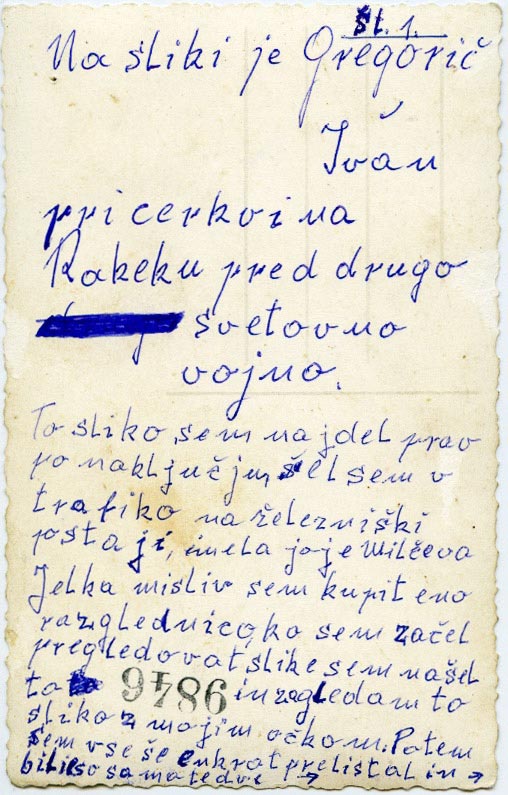 št. 1.
Na sliki je Gregorič
Ivan
pri cerkvi na
Rakeku pred drugo
svetovno
vojno.
To sliko sem najdel prav
po naključju, šel sem v
trafiko na železniški
postaji, imela jo je Milčeva
Jelka misliv sem kupit eno
razglednico, ko sem začel
pregledovat slike sem našel
to 9846 in zagledam to
sliko z mojim očkom. Potem
sem vse še enkrat prelistal in →
bili so samo te dve →